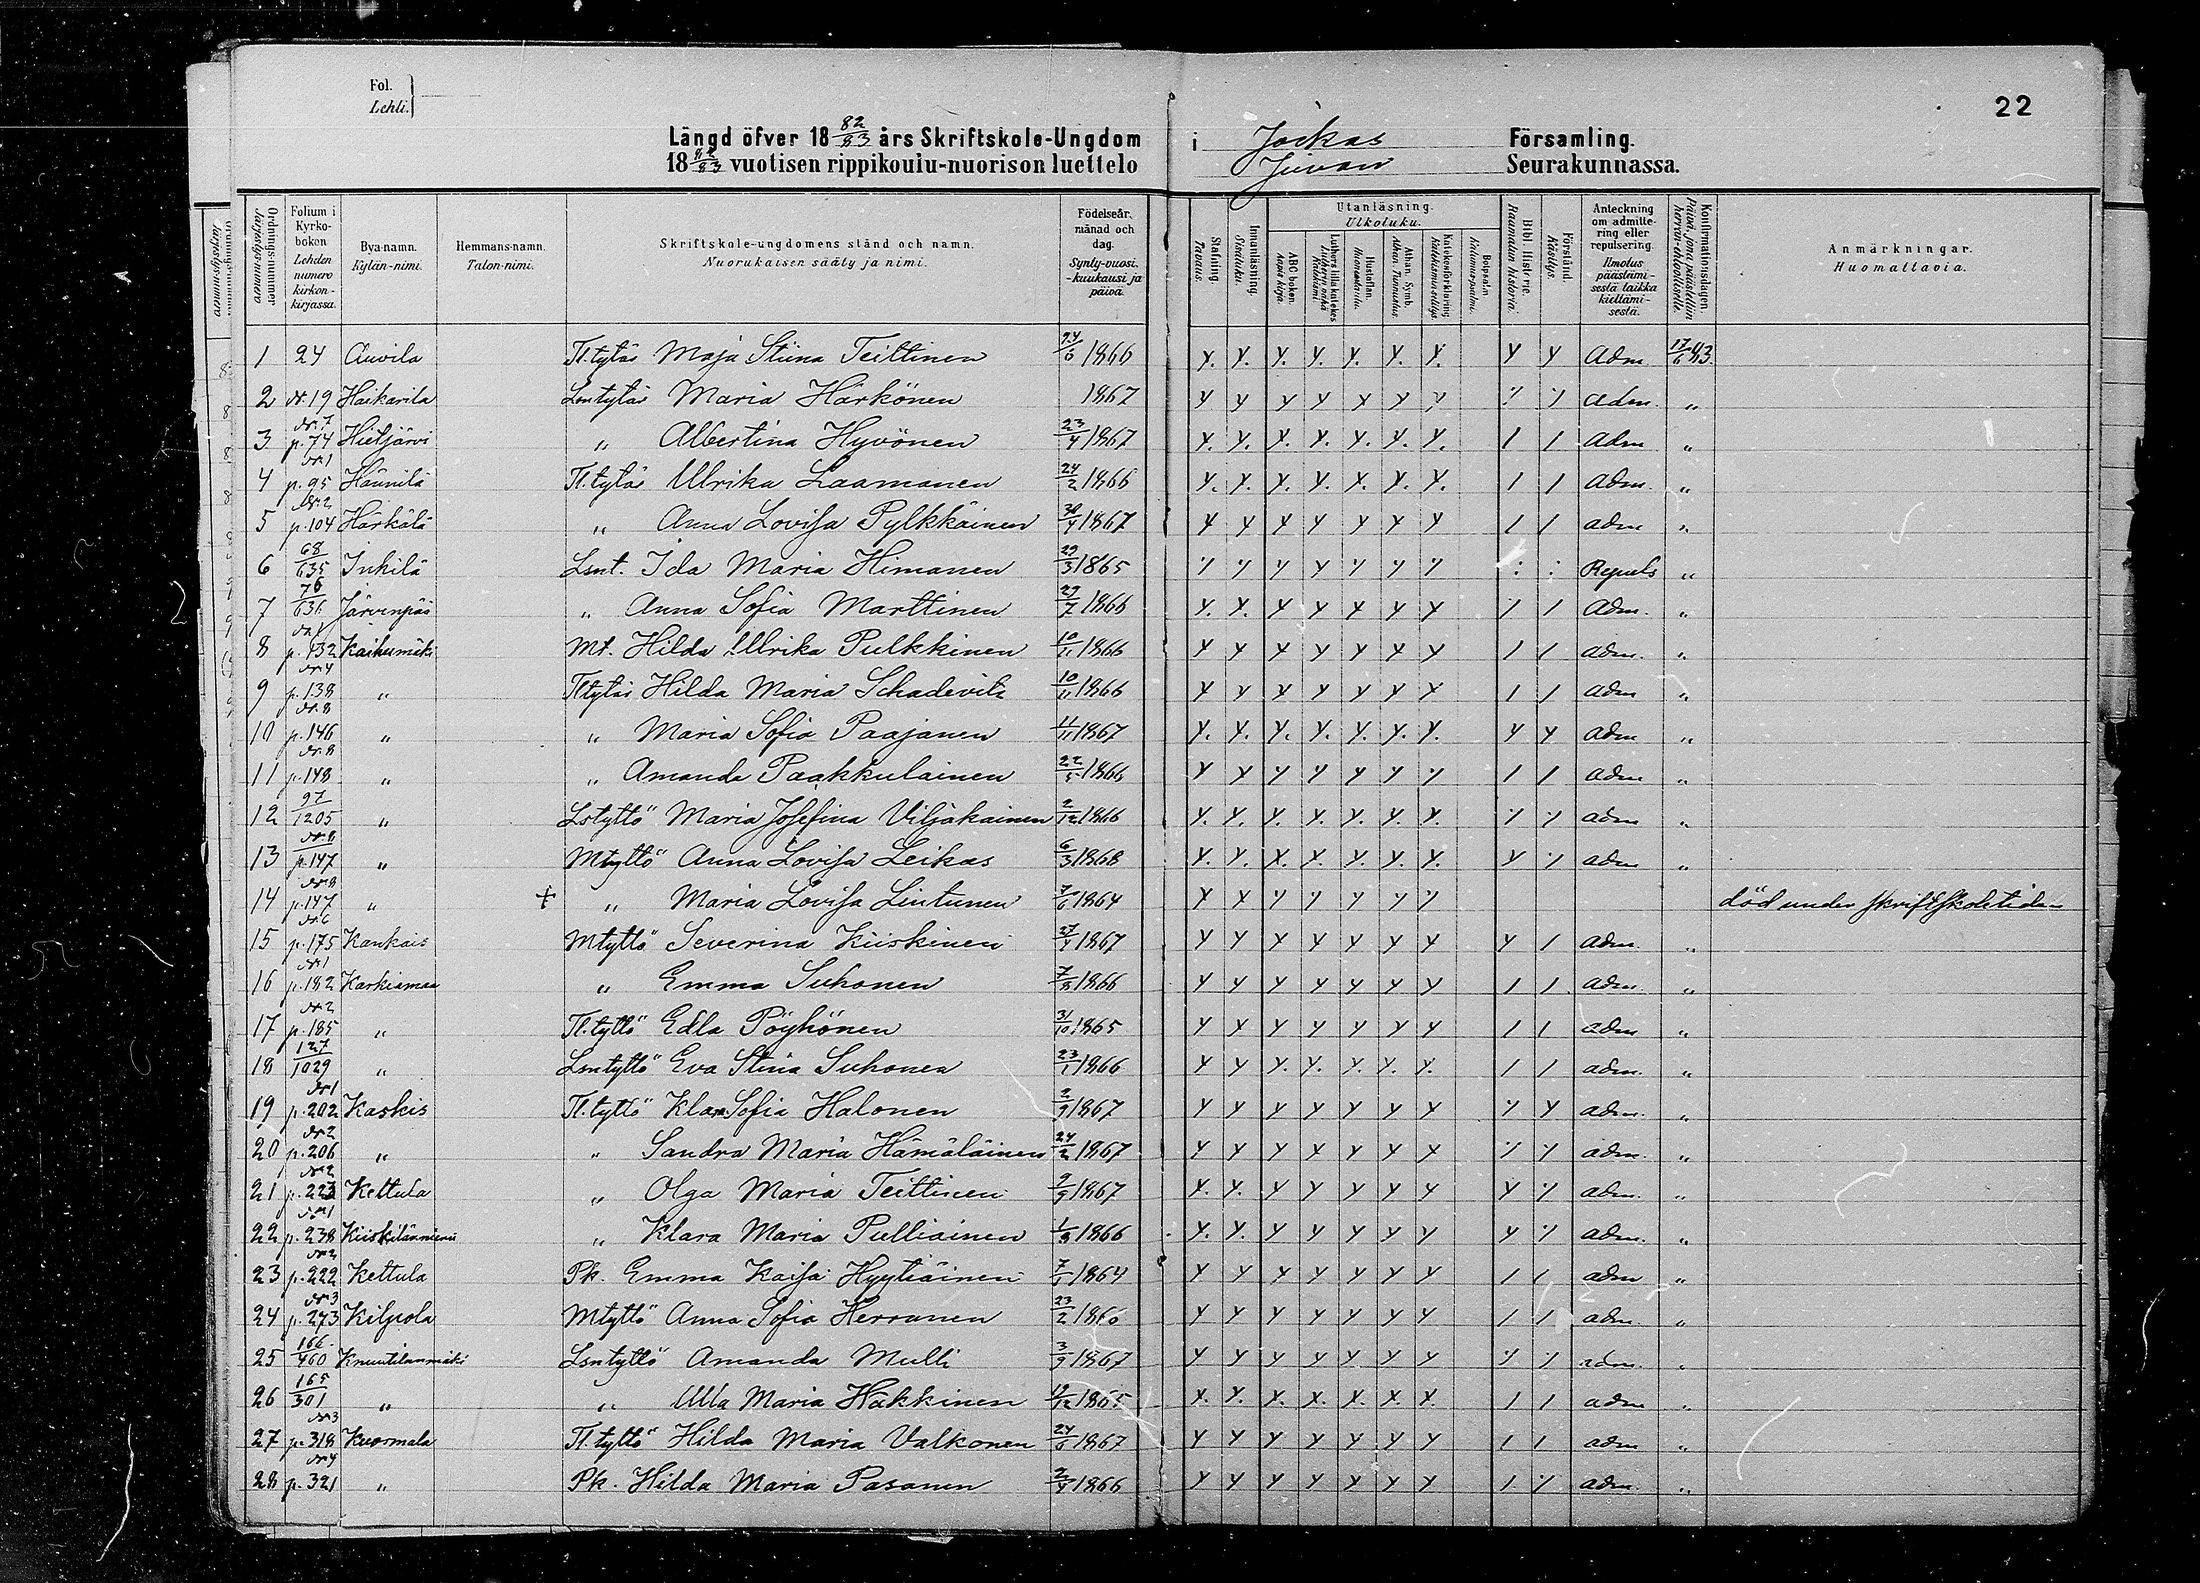 22
Fol.
Lehti.
Längd öfver 18 82/83 års Skriftskole-Ungdom i Jockas Församling.
18 82/83 vuotisen rippikoulu-nuorison luettelo Juvan Seurakunnassa.
Ordningsnummer Järjestys-numero Folium i Kyrkoboken Lehden numero kirkonkirjassa. Bya-namn. Kylän-nimi. Hemmans-namn. Talon-nimi. Skriftskole-ungdomens stånd och namn. Nuorukaisen sääty ja nimi. Födelseår, månad och dag. Synty-vuosi, -kuukausi ja päivä. Stafning. Tavaus. Innanläsning. Sisäluku. Utanläsning. Ulkoluku. ABC boken. Aapis kirja. Luthers lilla katekes. Lutherin vähä Katkismi. Hustaflan. Huoneentaulu. Athan. Symb. Athan. Tunnustus. Katekesförklaring. Katekismin selitys. Botpsalm. Katumus-psalmi. Bibl. Historie. Raamatun historia. Förstånd. Käsitys. Anteckning om admittering eller repulsering. Ilmotus päästämisestä taikka kieltämisestä. Konfirmationsdagen. Päivä, jona päästettiin herran-ehtoolliselle. Anmärkningar. Huomattavia.
1 24 Auvila Tl. tytär Maja Stiina Teittinen 24/6 1866 y. y. y. y. y. y. y. y y Adm. 17/6 83.
2 Nr. 19 Haikarila Lsntytär Maria Härkönen 1867 y y y y y y y adm. „
3 Nr. 7 p. 74 Hietjärvi „ Albertina Hyvönen 23/4 1867 y. y. y. y. y. y. y. 1 1 Adm „
4 Nr. 1 p. 95 Hännilä Tl. tytär Ulrika Laamanen 24/2 1866 y. y. y. y. y. y. y. 1 1 Adm. „
5 Nr. 2 p. 104 Härkälä „ Anna Lovisa Pylkkäinen 30/4 1867 y y y y y y y 1 1 adm „
6 68/635 Inkilä Lsnt. Ida Maria Himanen 29/3 1865 Repuls „
7 76/636 Järvenpää „ Anna Sofia Marttinen 29/7 1866 y. y. y y y y y Adm. „
8 Nr. 1 p. 132 Kaihumäki Mt. Hilda Ulrika Pulkkinen 10/11 1866 y y y y y y y 1 1 adm. „
9 Nr. 4 p. 138 „ Tl tytär Hilda Maria Schadevitz 10/11 1866 y y y y y y y 1 1 adm „
10 Nr. 8 p. 146 „ „ Maria Sofia Paajanen 11/11 1867 y. y. y. y. y. y. y. y y adm „
11 Nr. 8 p. 148 „ „ Amanda Paakkulainen 22/5 1866 y y y y y y y 1 1 adm „
12 97/1205 „ Lstyttö Maria Josefina Viljakainen 2/12 1866 y. y. y. y. y. y. y. adm „
13 Nr 8 p. 147 „ Mtyttö Anna Lovisa Leikas 6/3 1868 y. y. y. y. y. y. y. y adm „
14 Nr 8 p. 147 „ + „ Maria Lovisa Lintunen 7/6 1864 y y y y y y y död under skriftskoletiden
15 Nr. 6 p. 175 Kankais Mtyttö Severina Kiiskinen 27/4 1867 y y y y y y y y 1 adm. „
16 Nr 1 p. 182 Karkiamaa „ Emma Suhonen 7/8 1866 y y y y y y y 1 1 adm. „
17 Nr 2 p. 185 „ Tl. tyttö Edla Pöyhönen 31/10 1865 y y y y y y y 1 1 adm „
18 127/1029 „ Lsntyttö Eva Stina Suhonen 23/1 1866 y y y. y. y. y. y. 1 1 adm. „
19 Nr 1 p. 202 Kaskis Tl. tyttö Klara Sofia Halonen 2/9 1867 y y y y y y y y adm. „
20 Nr 2 p. 206 „ „ Sandra Maria Hämäläinen 24/2 1867 y y y y y y y adm. „
21 Nr 2 p. 223 Kettula „ Olga Maria Teittinen 9/9 1867 y. y. y y y y y y adm. „
22 Nr 1 p. 238 Kiiskilänniemi „ Klara Maria Pulliainen 1/8 1866 y. y. y y y y y y adm. „
23 Nr 2 p. 222 Kettula Pk. Emma Kaisa Hyytiäinen 7/1 1864 y y y y y y y 1 1 adm „
24 Nr 3 p. 273 Kilpola Mtyttö Anna Sofia Herranen 23/2 1866 y y y y y y y 1 1 adm. „
25 166/460 Knuutilanmäki Lsntyttö Amanda Mulli 3/9 1867 y y y y y y y adm. „
26 165/301 „ „ Ulla Maria Häkkinen 19/12 1865 y. y. y. y. y. y. y. 1 1 adm „
27 Nr 3 p. 318 Kuosmala Tl. tyttö Hilda Maria Valkonen 24/6 1867 y y y y y y y 1 1 adm „
28 Nr 4 p. 321 „ Pk. Hilda Maria Pasanen 2/4 1866 y y y y y y y 1 adm. „